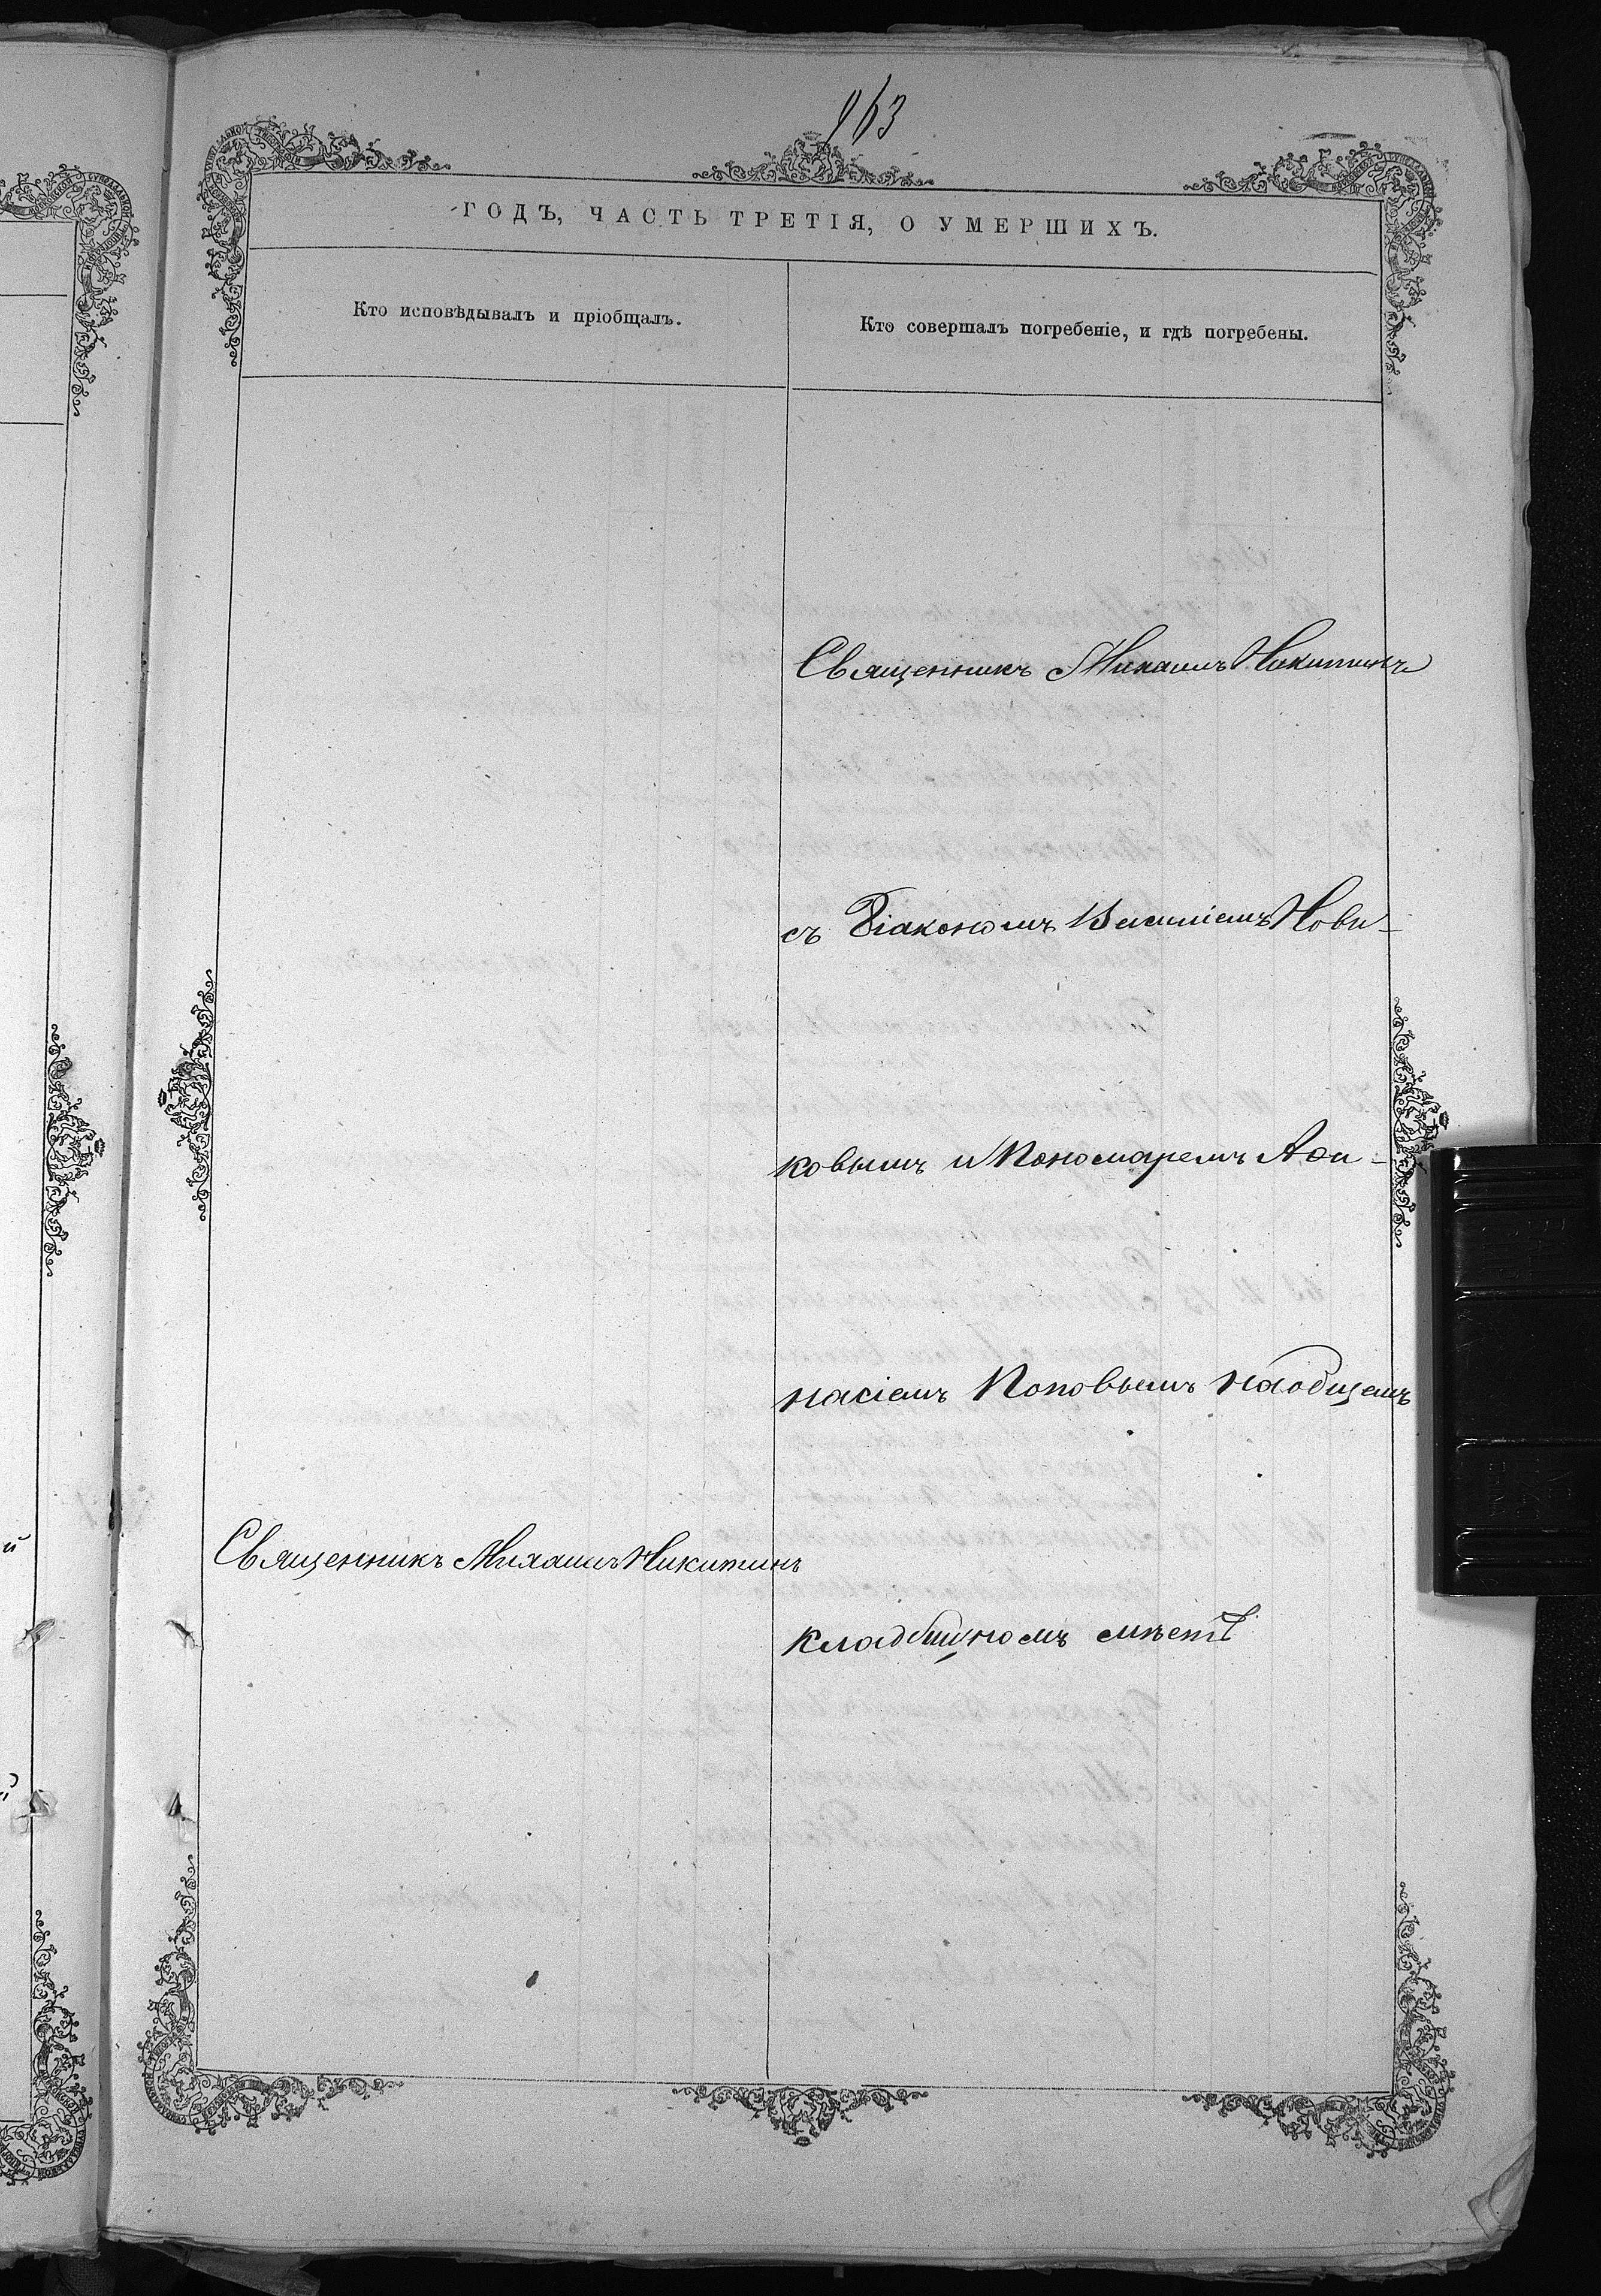 963
ГОДЪ, ЧАСТЬ ТРЕТІЯ, О УМЕРШИХЪ.
Кто исповѣдывалъ и пріобщалъ.
Кто совершалъ погребеніе, и гдѣ погребены.
Священникъ Михаилъ Никитинъ
съ Діакономъ Василіемъ Нови-
ковымъ и Пономаремъ Афи-
насіемъ Поповымъ на общемъ
Священникъ Михаилъ Никитинъ
кладбищномъ мѣстѣ